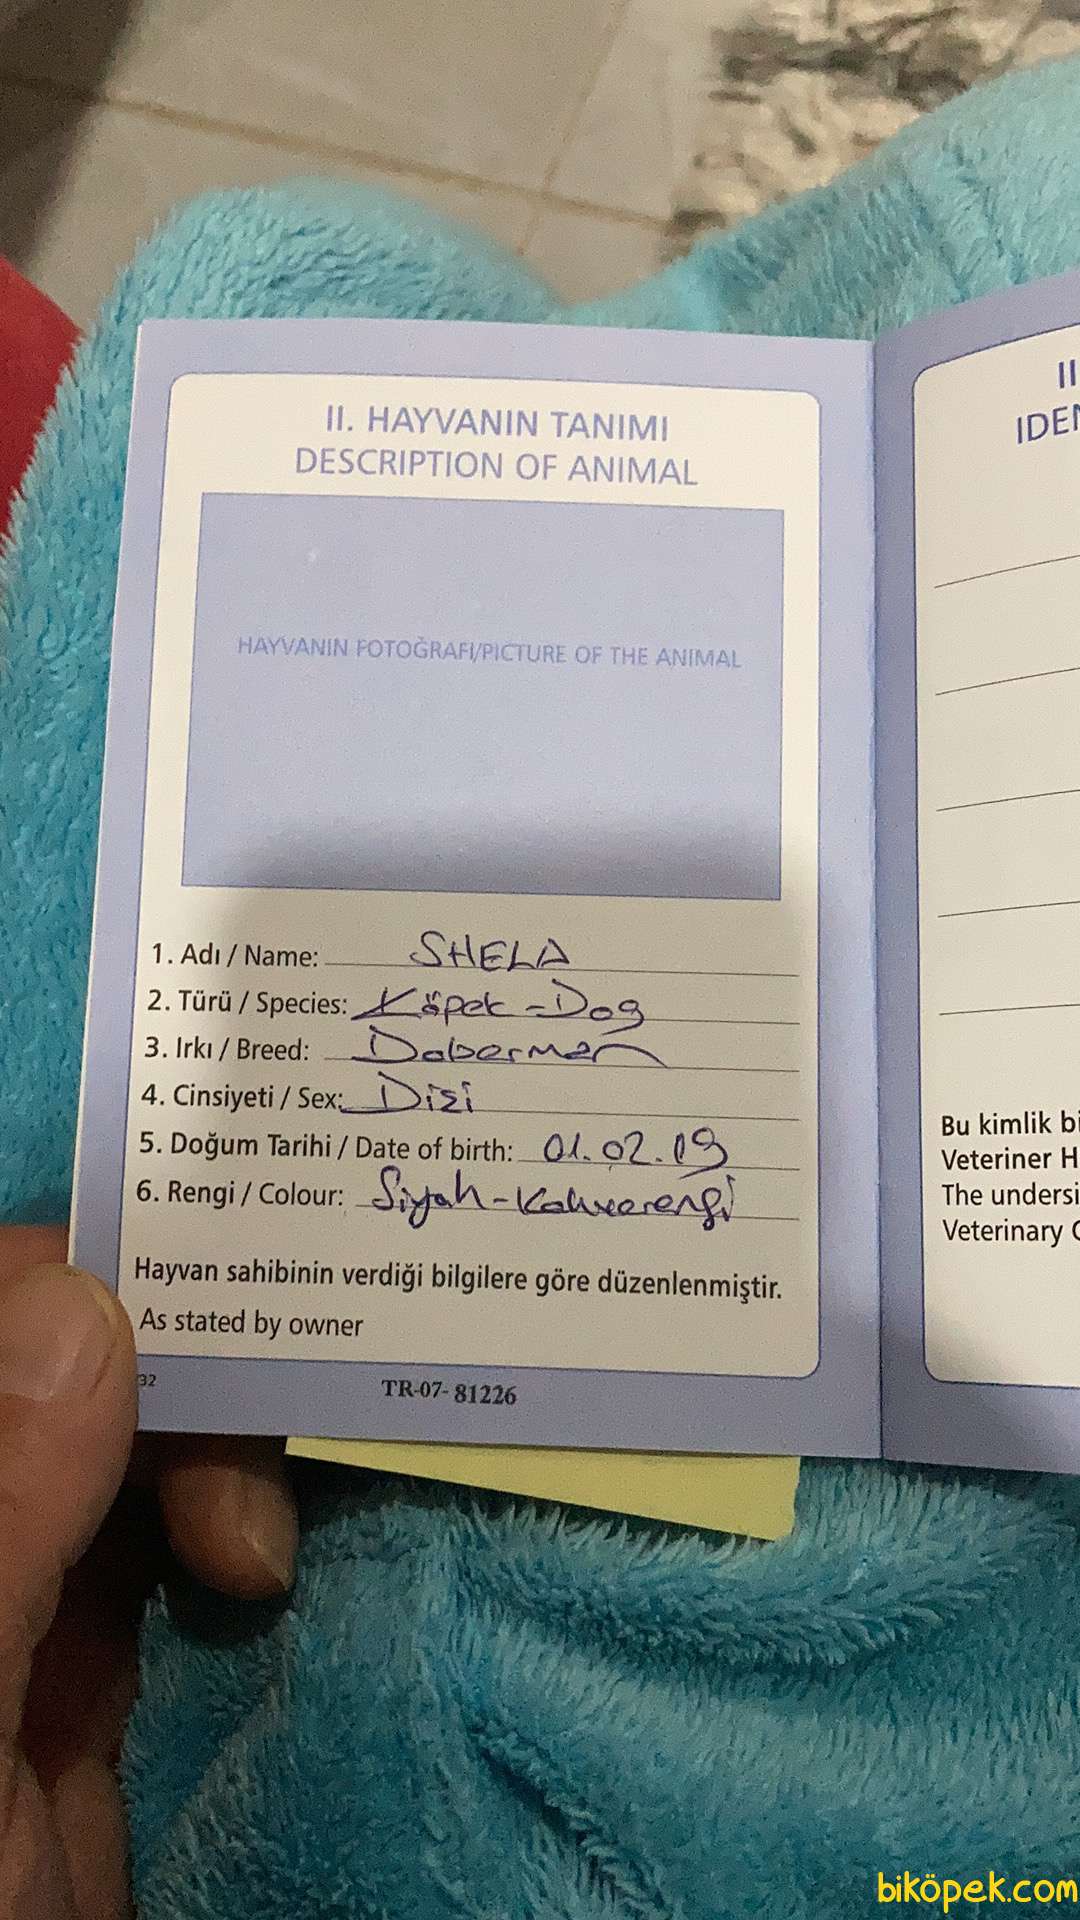 II. HAYVANIN TANIMI
DESCRIPTION OF ANIMAL
HAYVANIN FOTOĞRAFI/PICTURE OF THE ANIMAL
1. Adı / Name: SHELA
2. Türü / Species: Köpek - Dog
3. Irkı / Breed: Doberman
4. Cinsiyeti / Sex: Dişi
5. Doğum Tarihi / Date of birth: 01.02.19
6. Rengi / Colour: Siyah - Kahverengi
Hayvan sahibinin verdiği bilgilere göre düzenlenmiştir.
As stated by owner
32
TR-07- 81226
II
Bu kimlik
Veteriner
The
Veterinary
biköpek.com